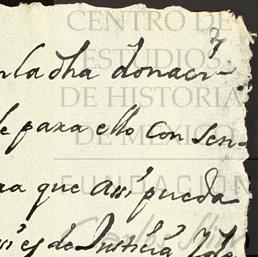 CENTRO DE
7
ESTUDIOS
en la dha donacn-
DE HISTORIA
de paxa ello con sen-
DE MEXICO
que assi pueda
FUNDACIÓN
es de Justicia